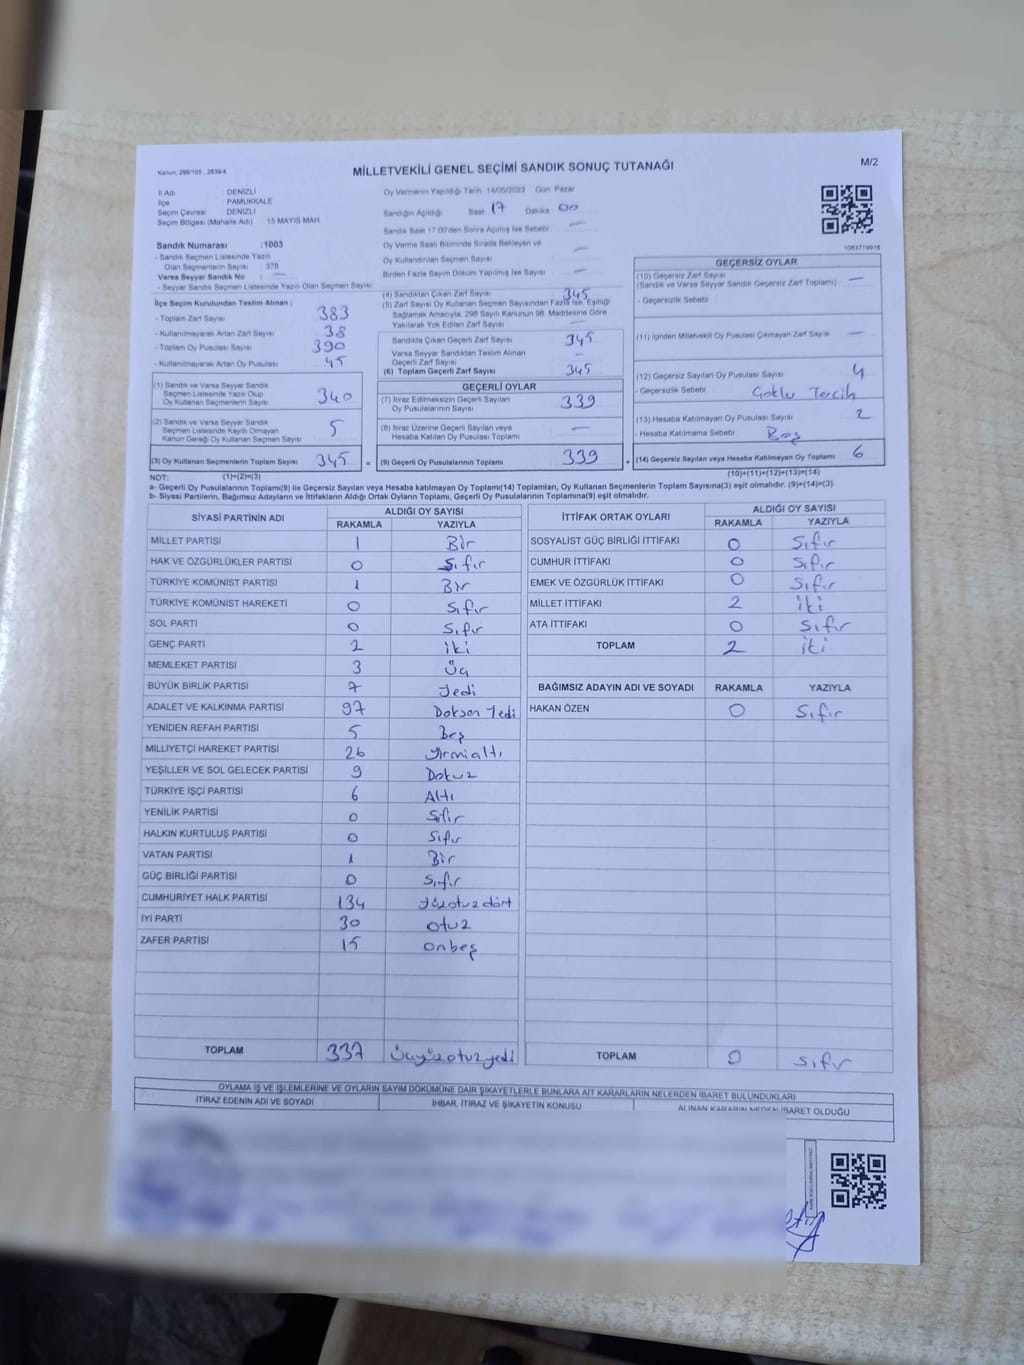 Kanun: 298/105 , 2839/4
MİLLETVEKİLİ GENEL SEÇİMİ SANDIK SONUÇ TUTANAĞI
M/2
İl Adı : DENİZLİ
İlçe : PAMUKKALE
Seçim Çevresi : DENİZLİ
Seçim Bölgesi (Mahalle Adı) : 15 MAYIS MAH.
Sandık Numarası :1003
- Sandık Seçmen Listesinde Yazılı
Olan Seçmenlerin Sayısı : 376
Varsa Seyyar Sandık No : —
- Seyyar Sandık Seçmen Listesinde Yazılı Olan Seçmen Sayısı
İlçe Seçim Kurulundan Teslim Alınan ;
- Toplam Zarf Sayısı 383
- Kullanılmayarak Artan Zarf Sayısı 38
- Toplam Oy Pusulası Sayısı 390
- Kullanılmayarak Artan Oy Pusulası 45
(1) Sandık ve Varsa Seyyar Sandık
Seçmen Listesinde Yazılı Olup
Oy Kullanan Seçmenlerin Sayısı 340
(2) Sandık ve Varsa Seyyar Sandık
Seçmen Listesinde Kayıtlı Olmayan
Kanun Gereği Oy Kullanan Seçmen Sayısı 5
(3) Oy Kullanan Seçmenlerin Toplam Sayısı 345 =
Oy Vermenin Yapıldığı Tarih :14/05/2023 Gün: Pazar
Sandığın Açıldığı Saat 17 Dakika 00
Sandık Saat 17:00'den Sonra Açılmış İse Sebebi : —
Oy Verme Saati Bitiminde Sırada Bekleyen ve
Oy Kullandırılan Seçmen Sayısı : —
Birden Fazla Sayım Döküm Yapılmış İse Sayısı : —
(4) Sandıktan Çıkan Zarf Sayısı 345
(5) Zarf Sayısı Oy Kullanan Seçmen Sayısından Fazla İse, Eşitliği
Sağlamak Amacıyla; 298 Sayılı Kanunun 98. Maddesine Göre
Yakılarak Yok Edilen Zarf Sayısı —
Sandıkta Çıkan Geçerli Zarf Sayısı 345
Varsa Seyyar Sandıktan Teslim Alınan
Geçerli Zarf Sayısı —
(6) Toplam Geçerli Zarf Sayısı 345
GEÇERLİ OYLAR
(7) İtiraz Edilmeksizin Geçerli Sayılan
Oy Pusulalarının Sayısı 339
(8) İtiraz Üzerine Geçerli Sayılan veya
Hesaba Katılan Oy Pusulası Toplamı —
(9) Geçerli Oy Pusulalarının Toplamı 339 +
1083719916
GEÇERSİZ OYLAR
(10) Geçersiz Zarf Sayısı
(Sandık ve Varsa Seyyar Sandık Geçersiz Zarf Toplamı) —
- Geçersizlik Sebebi :
(11) İçinden Milletvekili Oy Pusulası Çıkmayan Zarf Sayısı —
(12) Geçersiz Sayılan Oy Pusulası Sayısı 4
- Geçersizlik Sebebi : Çoklu Tercih
(13) Hesaba Katılmayan Oy Pusulası Sayısı 2
- Hesaba Katılmama Sebebi : Boş
(14) Geçersiz Sayılan veya Hesaba Katılmayan Oy Toplamı 6
NOT: (1)+(2)=(3) (10)+(11)+(12)+(13)=(14)
a- Geçerli Oy Pusulalarının Toplamı(9) ile Geçersiz Sayılan veya Hesaba katılmayan Oy Toplamı(14) Toplamları, Oy Kullanan Seçmenlerin Toplam Sayısına(3) eşit olmalıdır. (9)+(14)=(3)
b- Siyasi Partilerin, Bağımsız Adayların ve İttifakların Aldığı Ortak Oyların Toplamı, Geçerli Oy Pusulalarının Toplamına(9) eşit olmalıdır.
SİYASİ PARTİNİN ADI ALDIĞI OY SAYISI
RAKAMLA YAZIYLA
MİLLET PARTİSİ 1 Bir
HAK VE ÖZGÜRLÜKLER PARTİSİ 0 Sıfır
TÜRKİYE KOMÜNİST PARTİSİ 1 Bir
TÜRKİYE KOMÜNİST HAREKETİ 0 Sıfır
SOL PARTİ 0 Sıfır
GENÇ PARTİ 2 İki
MEMLEKET PARTİSİ 3 Üç
BÜYÜK BİRLİK PARTİSİ 7 Yedi
ADALET VE KALKINMA PARTİSİ 97 Doksan Yedi
YENİDEN REFAH PARTİSİ 5 Beş
MİLLİYETÇİ HAREKET PARTİSİ 26 Yirmialtı
YEŞİLLER VE SOL GELECEK PARTİSİ 9 Dokuz
TÜRKİYE İŞÇİ PARTİSİ 6 Altı
YENİLİK PARTİSİ 0 Sıfır
HALKIN KURTULUŞ PARTİSİ 0 Sıfır
VATAN PARTİSİ 1 Bir
GÜÇ BİRLİĞİ PARTİSİ 0 Sıfır
CUMHURİYET HALK PARTİSİ 134 Yüzotuzdört
İYİ PARTİ 30 otuz
ZAFER PARTİSİ 15 onbeş
TOPLAM 337 Üçyüzotuzyedi
İTTİFAK ORTAK OYLARI ALDIĞI OY SAYISI
RAKAMLA YAZIYLA
SOSYALİST GÜÇ BİRLİĞİ İTTİFAKI 0 Sıfır
CUMHUR İTTİFAKI 0 Sıfır
EMEK VE ÖZGÜRLÜK İTTİFAKI 0 Sıfır
MİLLET İTTİFAKI 2 İki
ATA İTTİFAKI 0 Sıfır
TOPLAM 2 İki
BAĞIMSIZ ADAYIN ADI VE SOYADI RAKAMLA YAZIYLA
HAKAN ÖZEN 0 Sıfır
TOPLAM 0 Sıfır
OYLAMA İŞ VE İŞLEMLERİNE VE OYLARIN SAYIM DÖKÜMÜNE DAİR ŞİKAYETLERLE BUNLARA AİT KARARLARIN NELERDEN İBARET BULUNDUKLARI
İTİRAZ EDENİN ADI VE SOYADI İHBAR, İTİRAZ VE ŞİKAYETİN KONUSU ALINAN KARARIN NEDEN İBARET OLDUĞU